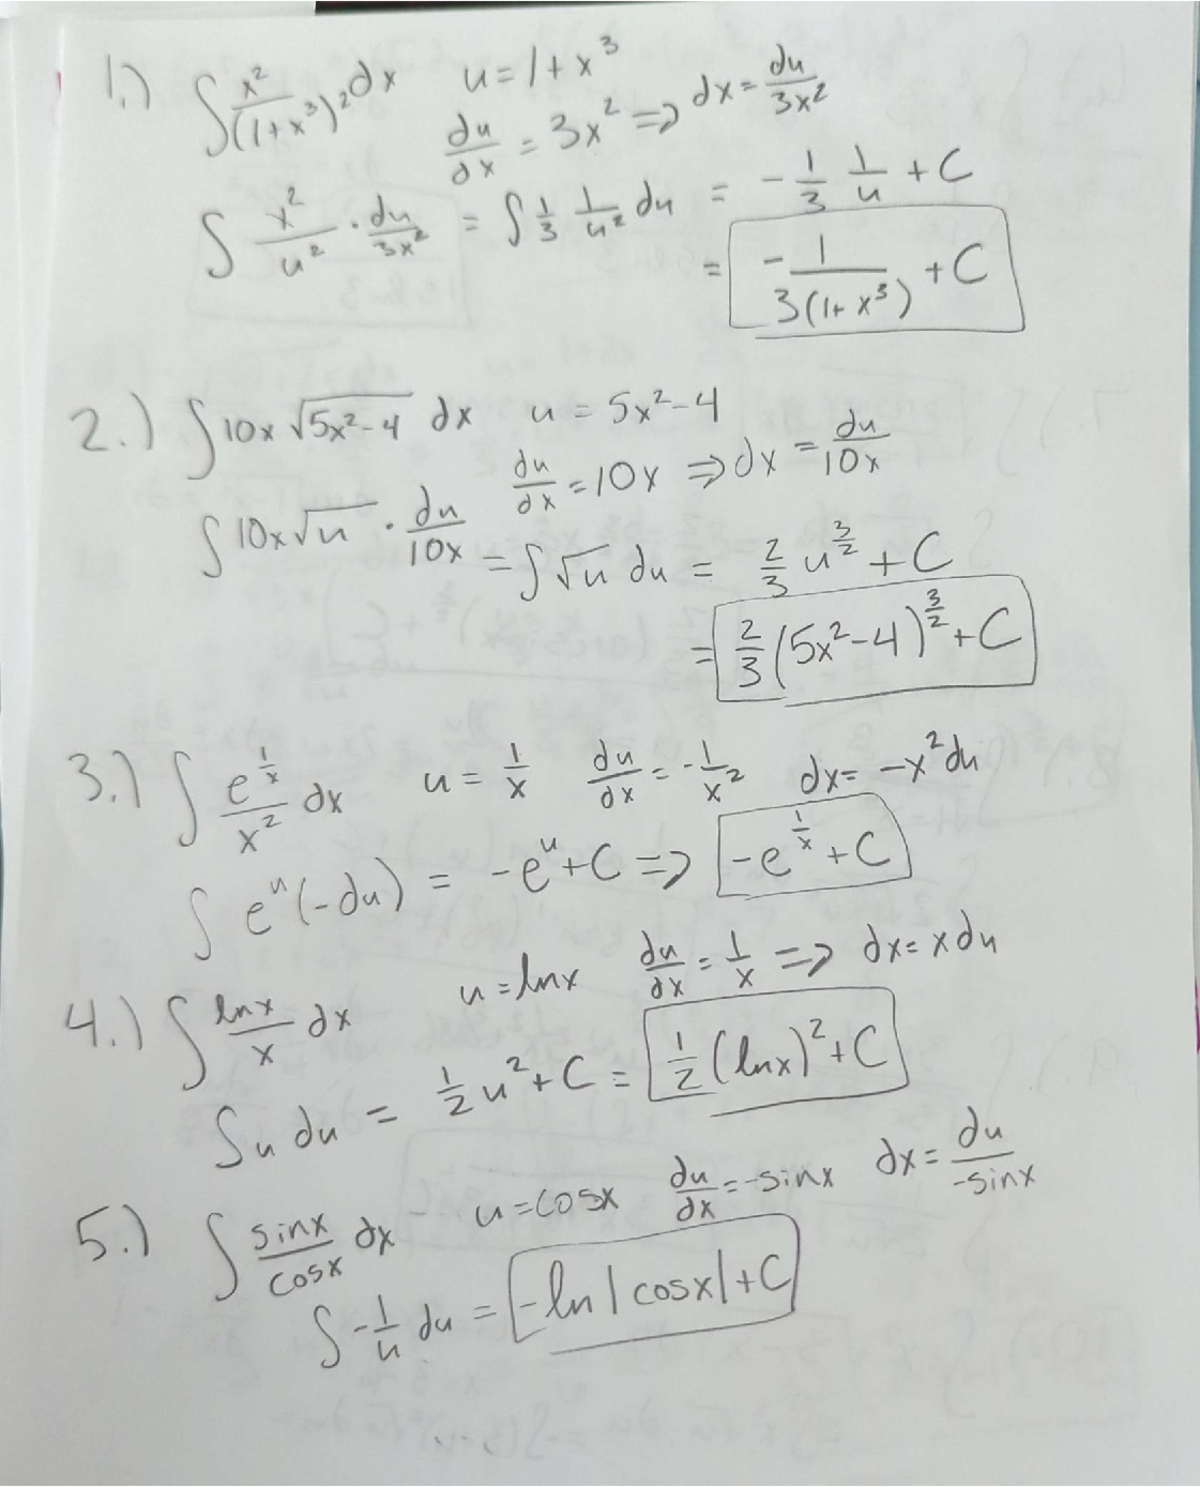 1.) ∫ x²/(1+x³)² dx u = 1 + x³
du/dx = 3x² ⇒ dx = du/3x²
∫ x²/u² · du/3x² = ∫ 1/3 1/u² du = - 1/3 1/u + C
= - 1/3(1+x³) + C
2.) ∫ 10x √(5x²-4) dx u = 5x²-4
du/dx = 10x ⇒ dx = du/10x
∫ 10x √u · du/10x = ∫ √u du = 2/3 u^(3/2) + C
= 2/3 (5x²-4)^(3/2) + C
3.) ∫ e^(1/x)/x² dx u = 1/x du/dx = - 1/x² dx = -x² du
∫ e^u (-du) = -e^u + C ⇒ -e^(1/x) + C
4.) ∫ lnx/x dx u = lnx du/dx = 1/x ⇒ dx = x du
∫ u du = 1/2 u² + C = 1/2 (lnx)² + C
5.) ∫ sinx/cosx dx u = cosx du/dx = -sinx dx = du/-sinx
∫ - 1/u du = -ln|cosx| + C